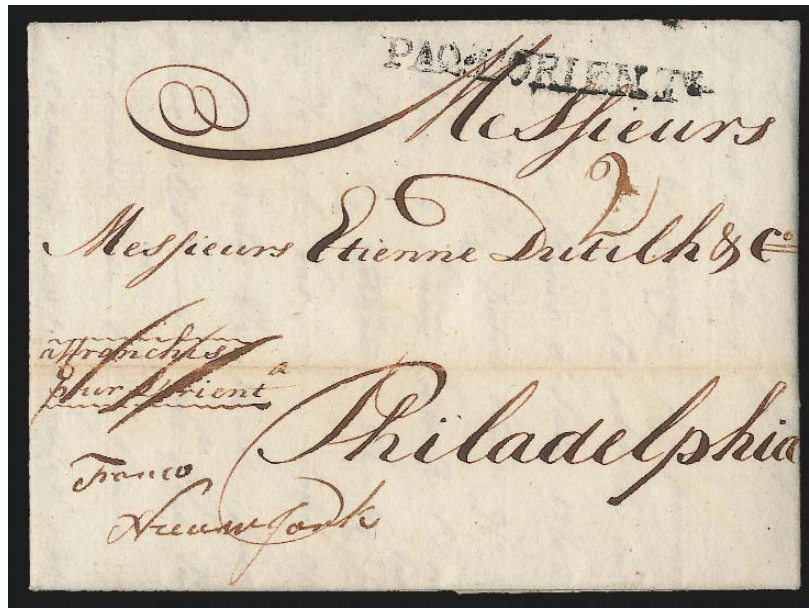 PAQ. L'ORIENT
Messieurs
2
Messieurs Etienne Dutilh & Co
affranchis
pur L'orient a
Philadelphia
Franco
Nieuw Jork